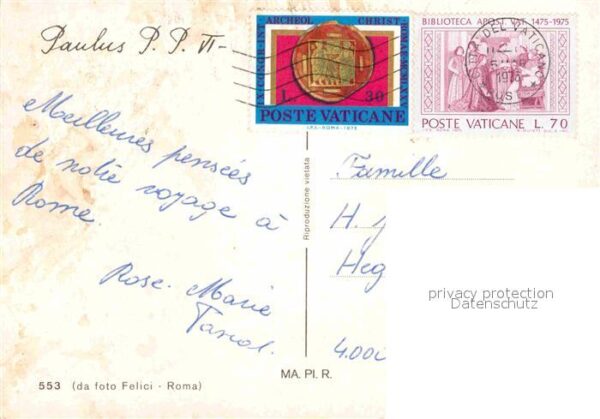 Paulus P. P. VI
IX CONGR · INT · ARCHEOL CHRIST · ROMAE
L. 30
POSTE VATICANE
I.P.S.-ROMA-1975
BIBLIOTECA APOST. VAT. 1475-1975
POSTE VATICANE L. 70
Meilleures pensées
de notre voyage à
Rome.
Rose-Marie
Famille
H.
Heg
4.00
Riproduzione vietata
privacy protection
Datenschutz
MA. PI. R.
553 (da foto Felici - Roma)